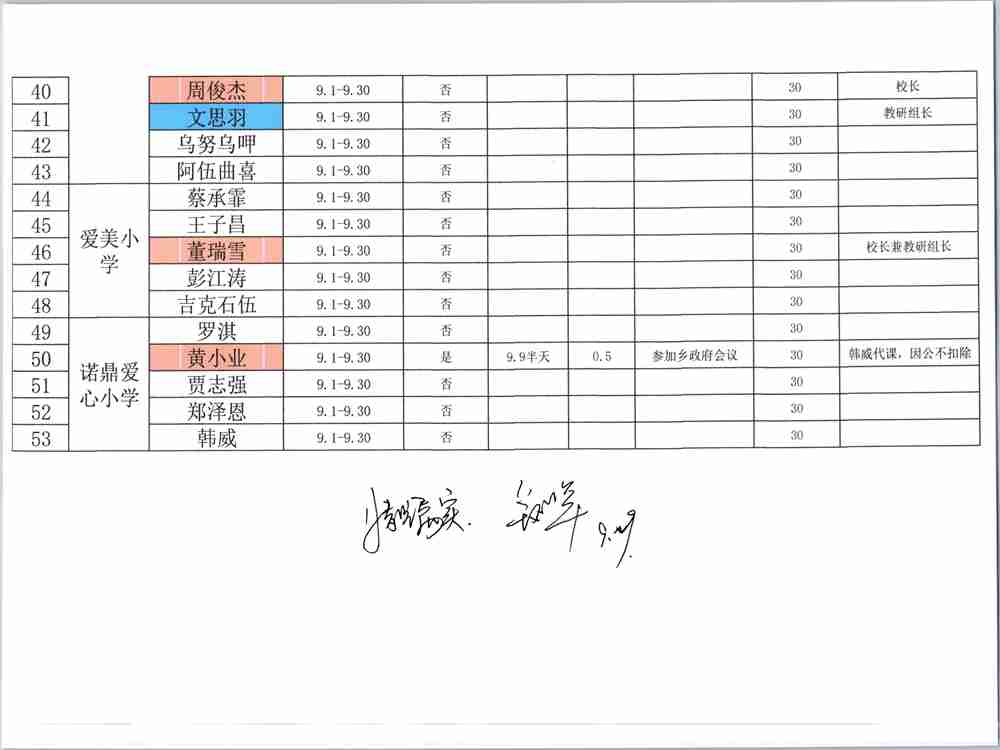 40 周俊杰 9.1-9.30 否 30 校长
41 文思羽 9.1-9.30 否 30 教研组长
42 乌努乌呷 9.1-9.30 否 30
43 阿伍曲喜 9.1-9.30 否 30
爱美小学
44 蔡承霏 9.1-9.30 否 30
45 王子昌 9.1-9.30 否 30
46 董瑞雪 9.1-9.30 否 30 校长兼教研组长
47 彭江涛 9.1-9.30 否 30
48 吉克石伍 9.1-9.30 否 30
诺鼎爱心小学
49 罗淇 9.1-9.30 否 30
50 黄小业 9.1-9.30 是 9.9半天 0.5 参加乡政府会议 30 韩威代课，因公不扣除
51 贾志强 9.1-9.30 否 30
52 郑泽恩 9.1-9.30 否 30
53 韩威 9.1-9.30 否 30
情况属实.